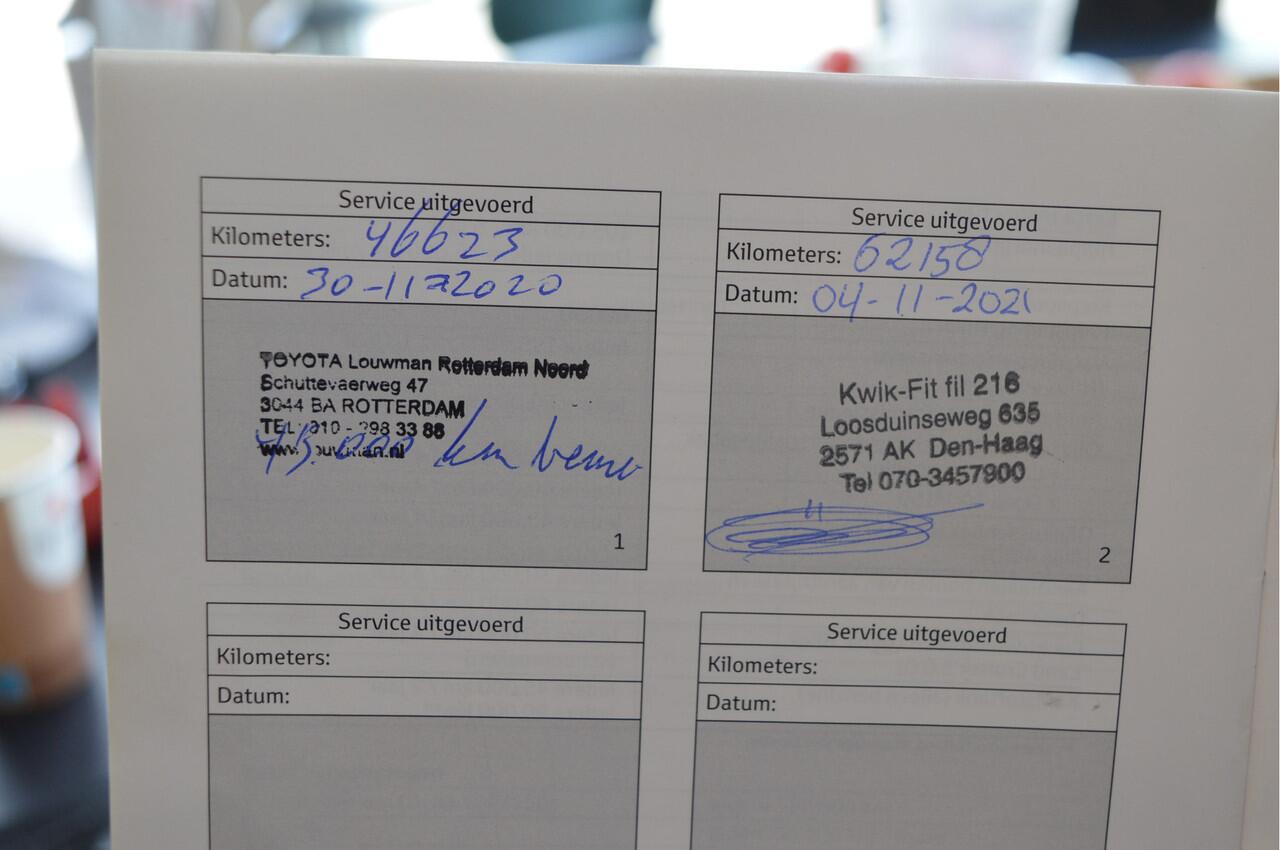 Service uitgevoerd
Kilometers: 46623
Datum: 30-11-2020
TOYOTA Louwman Rotterdam Noord
Schuttevaerweg 47
3044 BA ROTTERDAM
TEL: 010 - 298 33 88
www.louwman.nl
45.000 km
1
Service uitgevoerd
Kilometers: 62158
Datum: 04-11-2021
Kwik-Fit fil 216
Loosduinseweg 635
2571 AK Den-Haag
Tel 070-3457900
2
Service uitgevoerd
Kilometers:
Datum:
Service uitgevoerd
Kilometers:
Datum: